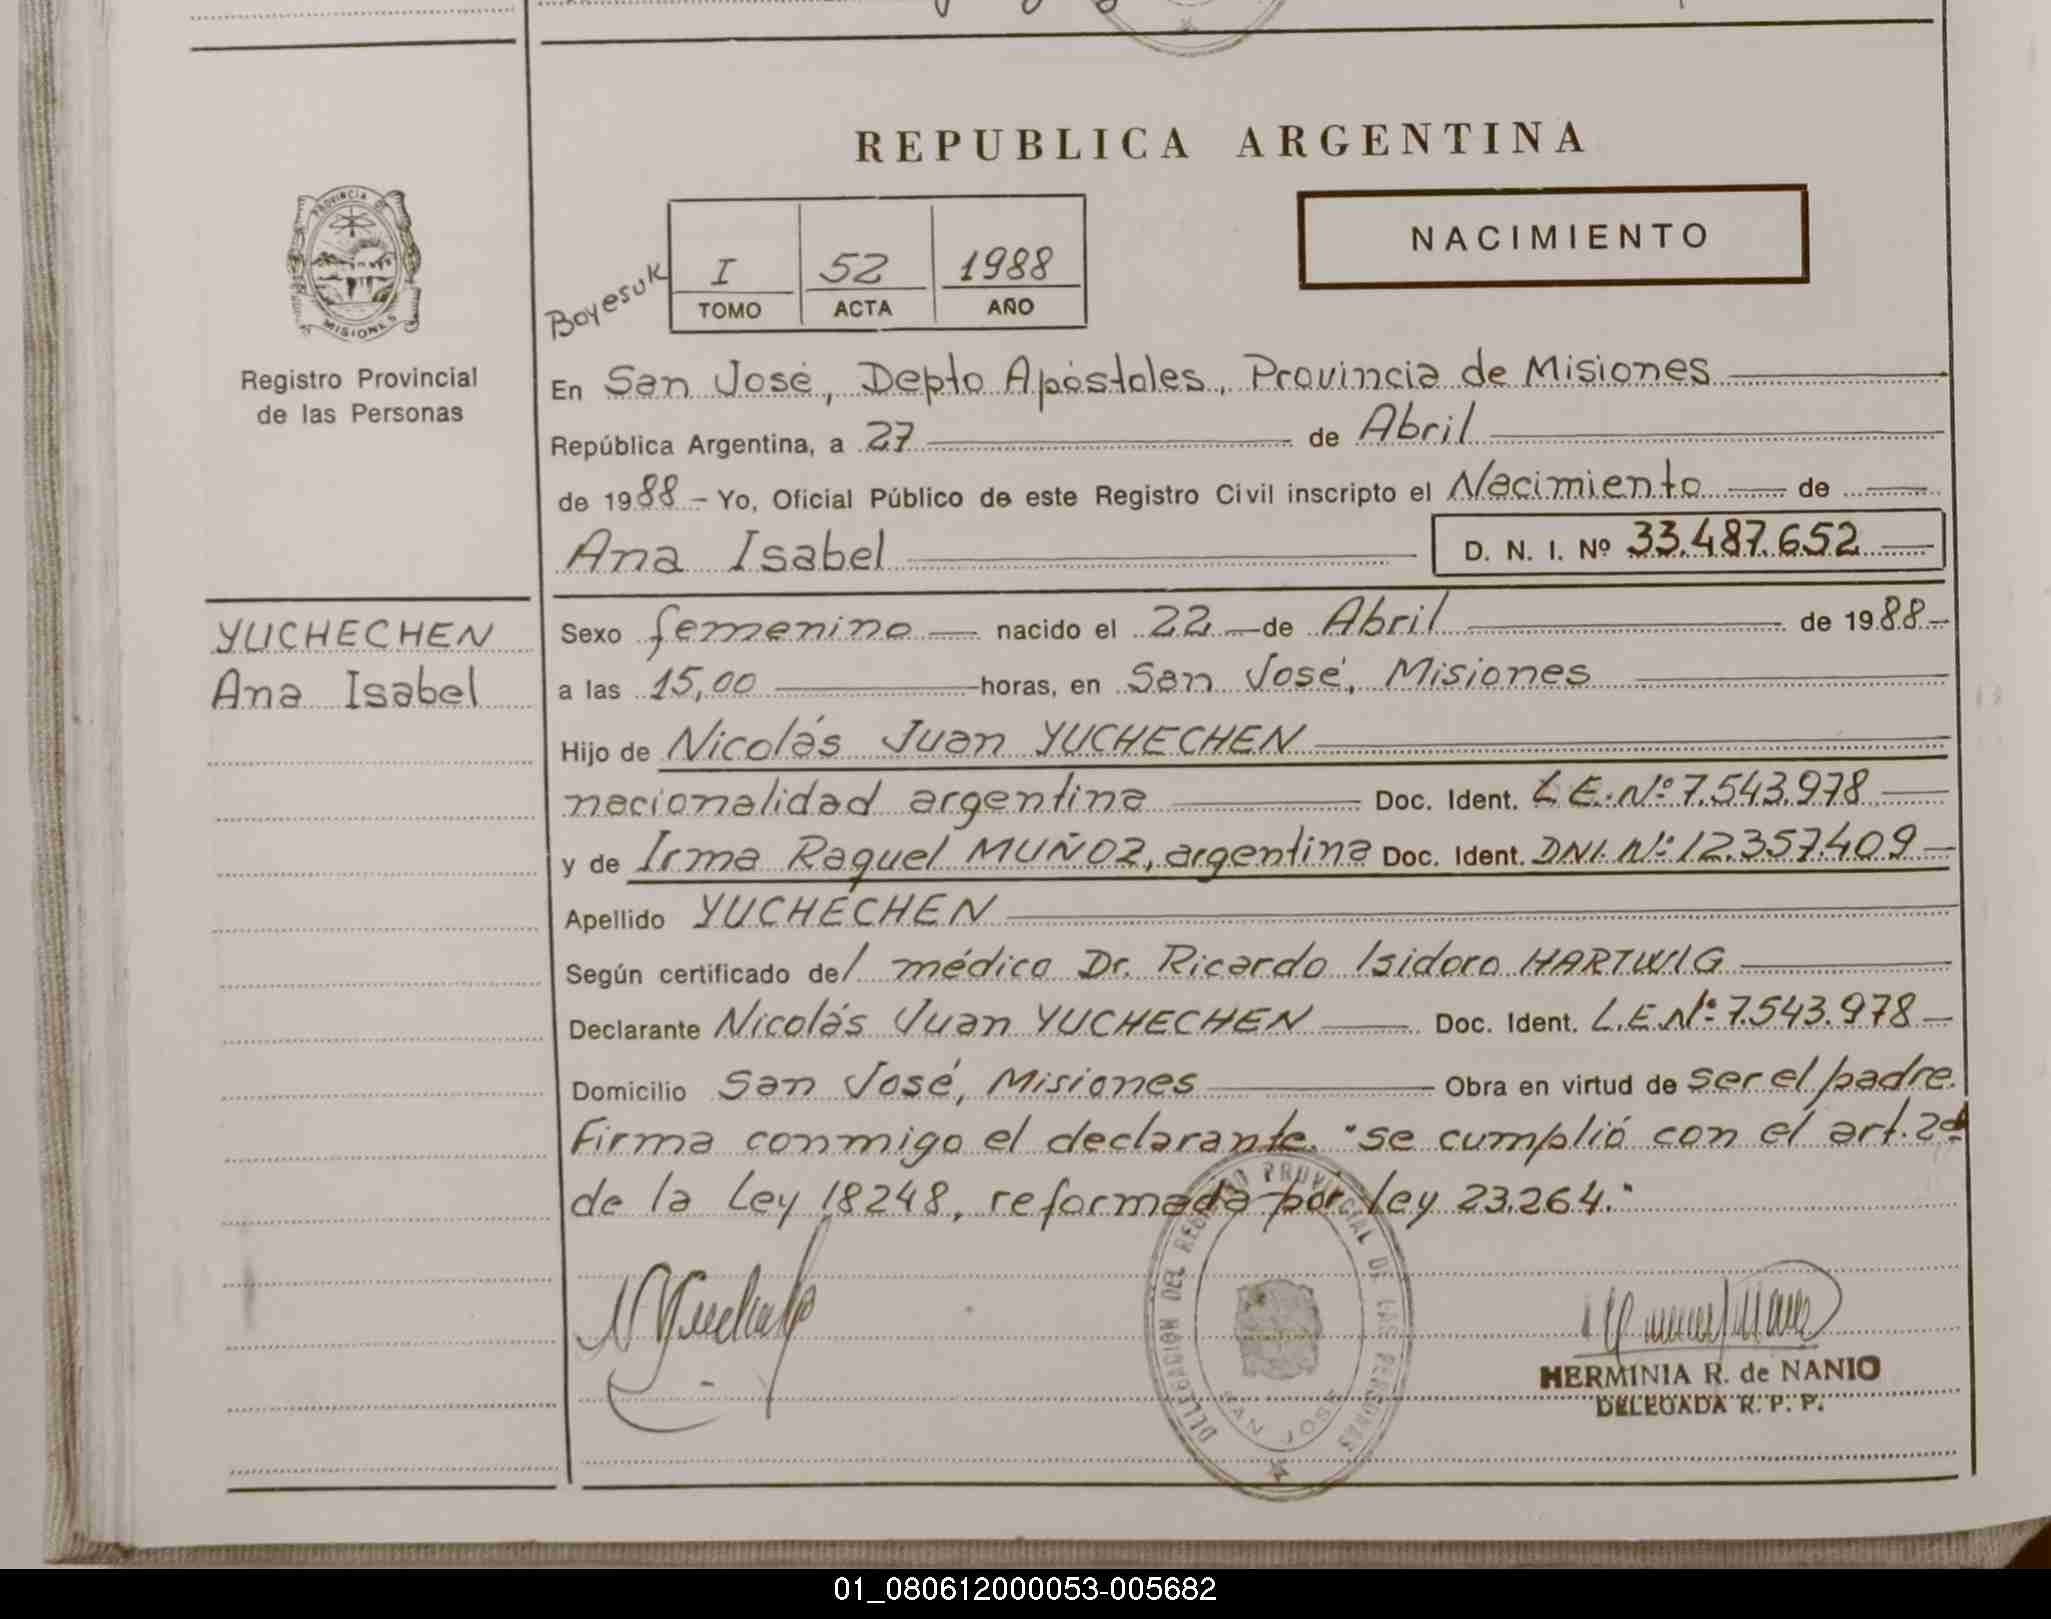 REPUBLICA ARGENTINA
PROVINCIA DE
MISIONES
Registro Provincial
de las Personas
NACIMIENTO
Boyesuk
I 52 1988
TOMO ACTA AÑO
En San José, Depto Apóstoles, Provincia de Misiones
República Argentina, a 27 de Abril
de 1988 - Yo, Oficial Público de este Registro Civil inscripto el Nacimiento de
Ana Isabel D. N. I. Nº 33.487.652
YUCHECHEN
Ana Isabel
Sexo femenino nacido el 22 de Abril de 1988
a las 15,00 horas, en San José, Misiones
Hijo de Nicolás Juan YUCHECHEN
nacionalidad argentina Doc. Ident. L.E. Nº 7.543.978
y de Irma Raquel MUÑOZ, argentina Doc. Ident. DNI. Nº 12.357.409
Apellido YUCHECHEN
Según certificado del médico Dr. Ricardo Isidoro HARTWIG
Declarante Nicolás Juan YUCHECHEN Doc. Ident. L.E. Nº 7.543.978
Domicilio San José, Misiones Obra en virtud de ser el padre.
Firma conmigo el declarante. "Se cumplió con el art. 2º
de la Ley 18248, reformada por ley 23.264."
DELEGACION DEL REGISTRO PROVINCIAL DE LAS PERSONAS
SAN JOSE
HERMINIA R. de NANIO
DELEGADA R. P. P.
01_080612000053-005682